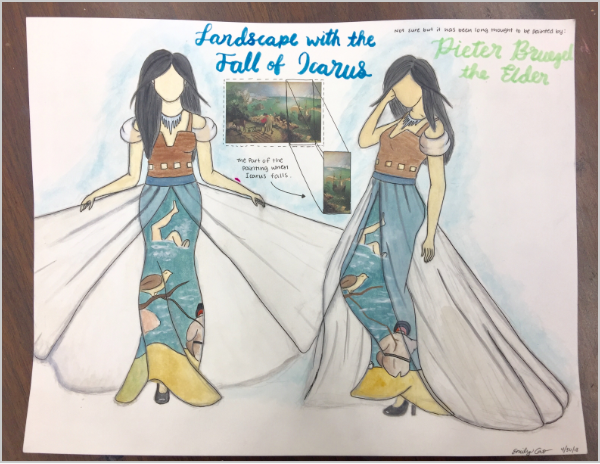 Landscape with the
Fall of Icarus
Not sure but it has been long thought to be painted by:
Pieter Bruegel
the Elder
The Part of the
painting when
Icarus falls.
Emily